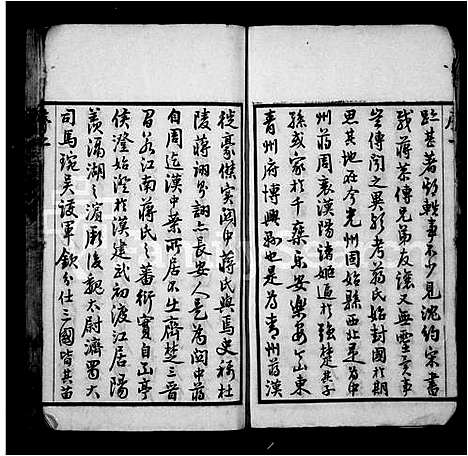 跎甚著頻軼事不少見沈約宋書
或蔣恭傳兄弟友誼又無靈異事
豈傳聞之異歟考蔣氏始封國於期
思其地在今光州固始縣西北東為中
州蔣周衰漢陽諸姬逼於強楚其子
孫或家於千乘樂安樂安今山東
青州府博興縣也是為青州蔣漢
徙豪傑實關中蔣氏與焉史稱杜
陵蔣詡詡亦長安人是為關中蔣
自周迄漢中葉所居不出齊楚三晉
若江南蔣氏之蕃衍實自亭
侯澄始澄於漢建武初渡江居陽
羨滆湖之濱厥後魏太尉濟蜀大
司馬琬吳護軍欽分仕三國皆其苗